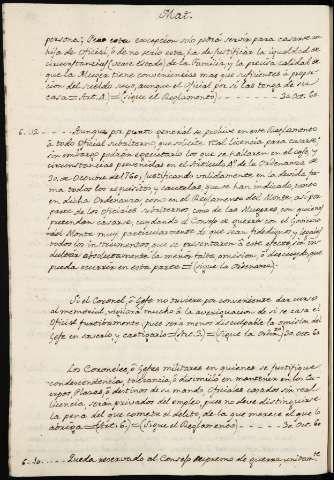 Mat.
persona; Pero esta excepcion solo podrá servir para casarse con
hija de Oficial, ó de no serlo esta, ha de justificar la igualdad de
circunstancias (vease estado) de la Familia, y la precisa calidad de
que la Muger tiene conveniencias mas que suficientes á propor-
cion del sueldo suyo, aunque el Oficial por sí las tenga de su
casa = Art. A. = (sigue el Reglamento) 30. Oct. 60
Aunque por punto general se prohive en este Reglamento
á todo Oficial subalterno que solicite Real licencia para casarse,
sin embargo podrán egecutarlo los que se hallaren en el caso, y
circunstancias prevenidas en el Articulo A.º de la Ordenanza de
30. de Octubre de 1760, justificando validamente en la devida for-
ma todos los requisitos, y cautelas, que se han indicado, tanto
en dicha Ordenanza, como en el Reglamento del Monte, asi por
parte de los oficiales subalternos como de las Mugeres con quienes
pretenden casarse, cuidando el Consejo de guerra con el Govierno
del Monte muy particularmente de que sean fidedignos, y legales
todos los instrumentos, que se presentaren á este efecto, sin in-
dultar absolutamente la menor falta, omision, ó descuido, que
pueda ocurrir en esta parte = (Sigue la Ordenanza)
Si el Coronel, ó Gefe no tuviese por conveniente dar curso
al memorial, vigilará mucho á la averiguacion de si se casa el
Oficial furtivamente, pues será menos disculpable la omision del
Gefe en saverlo, y castigarlo = (Sigue la Ordza.) 30. Oct. 60
Los Coroneles, ó Gefes militares en quienes se justifique
condescendencia, tolerancia, ó disimulo en mantener en los Cu-
erpos, Plazas, ó destinos de su mando, Oficiales casados sin real
Licencia, serán privados del empleo, pues no deve distinguirse
la pena del que comete el delito, de la que merece el que lo
abriga = (Art. 6.) = (Sigue el Reglamento) 30. Oct. 60
Queda reservado al Consejo Supremo de guerra, unidamte.